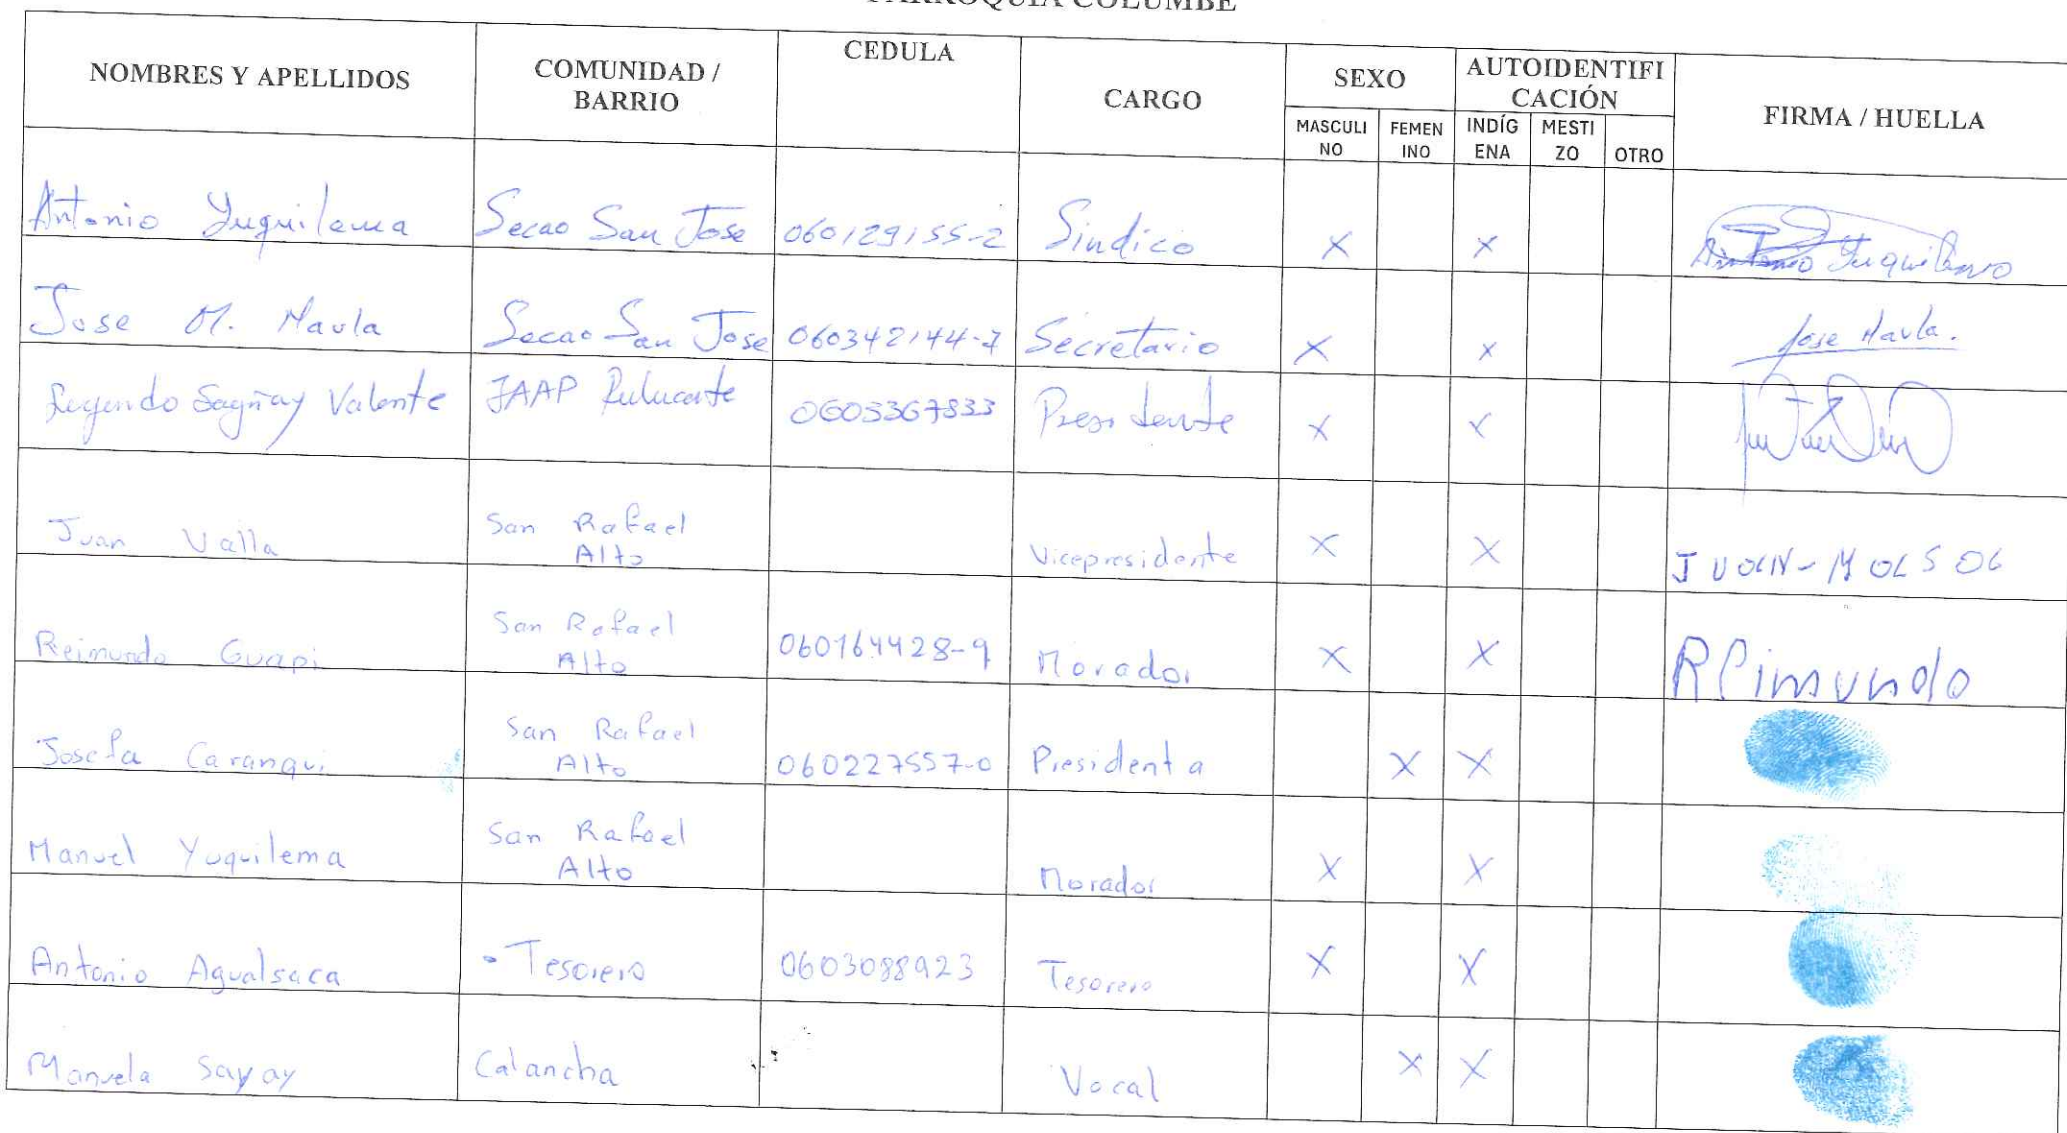 PARROQUIA COLUMBE
NOMBRES Y APELLIDOS
COMUNIDAD / BARRIO
CEDULA
CARGO
SEXO
AUTOIDENTIFI
CACIÓN
FIRMA / HUELLA
MASCULI
NO
FEMEN
INO
INDÍG
ENA
MESTI
ZO
OTRO
Antonio Yuquilema Secao San Jose 060129155-2 Sindico X X Antonio Yuquilema
Jose M. Maula Secao San Jose 060342144-7 Secretario X X Jose Maula.
Segundo Sagñay Valente JAAP 0603367833 Presidente X X
Juan Valla San Rafael
Alto Vicepresidente X X
Reimundo Guapi San Rafael
Alto 060164428-9 Morador X X REimundo
Josefa Caranqui San Rafael
Alto 060227557-0 Presidenta X X
Manuel Yuquilema San Rafael
Alto Morador X X
Antonio Agualsaca - Tesorero 0603088923 Tesorero X X
Manuela Sayay Calancha Vocal X X